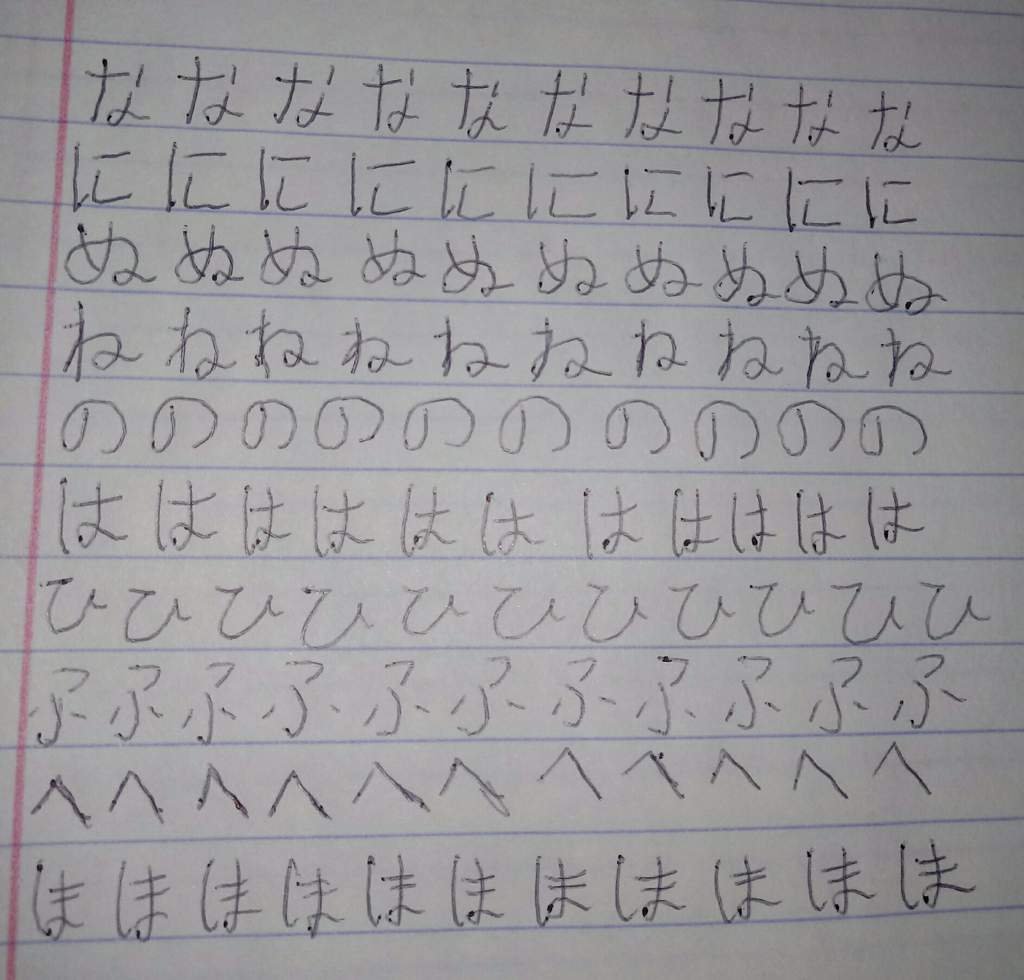 な な な な な な な な な な
に に に に に に に に に に
ぬ ぬ ぬ ぬ ぬ ぬ ぬ ぬ ぬ ぬ
ね ね ね ね ね ね ね ね ね ね
の の の の の の の の の の
は は は は は は は は は は は
ひ ひ ひ ひ ひ ひ ひ ひ ひ ひ ひ
ふ ふ ふ ふ ふ ふ ふ ふ ふ ふ ふ
へ へ へ へ へ へ へ へ へ へ へ
ほ ほ ほ ほ ほ ほ ほ ほ ほ ほ ほ